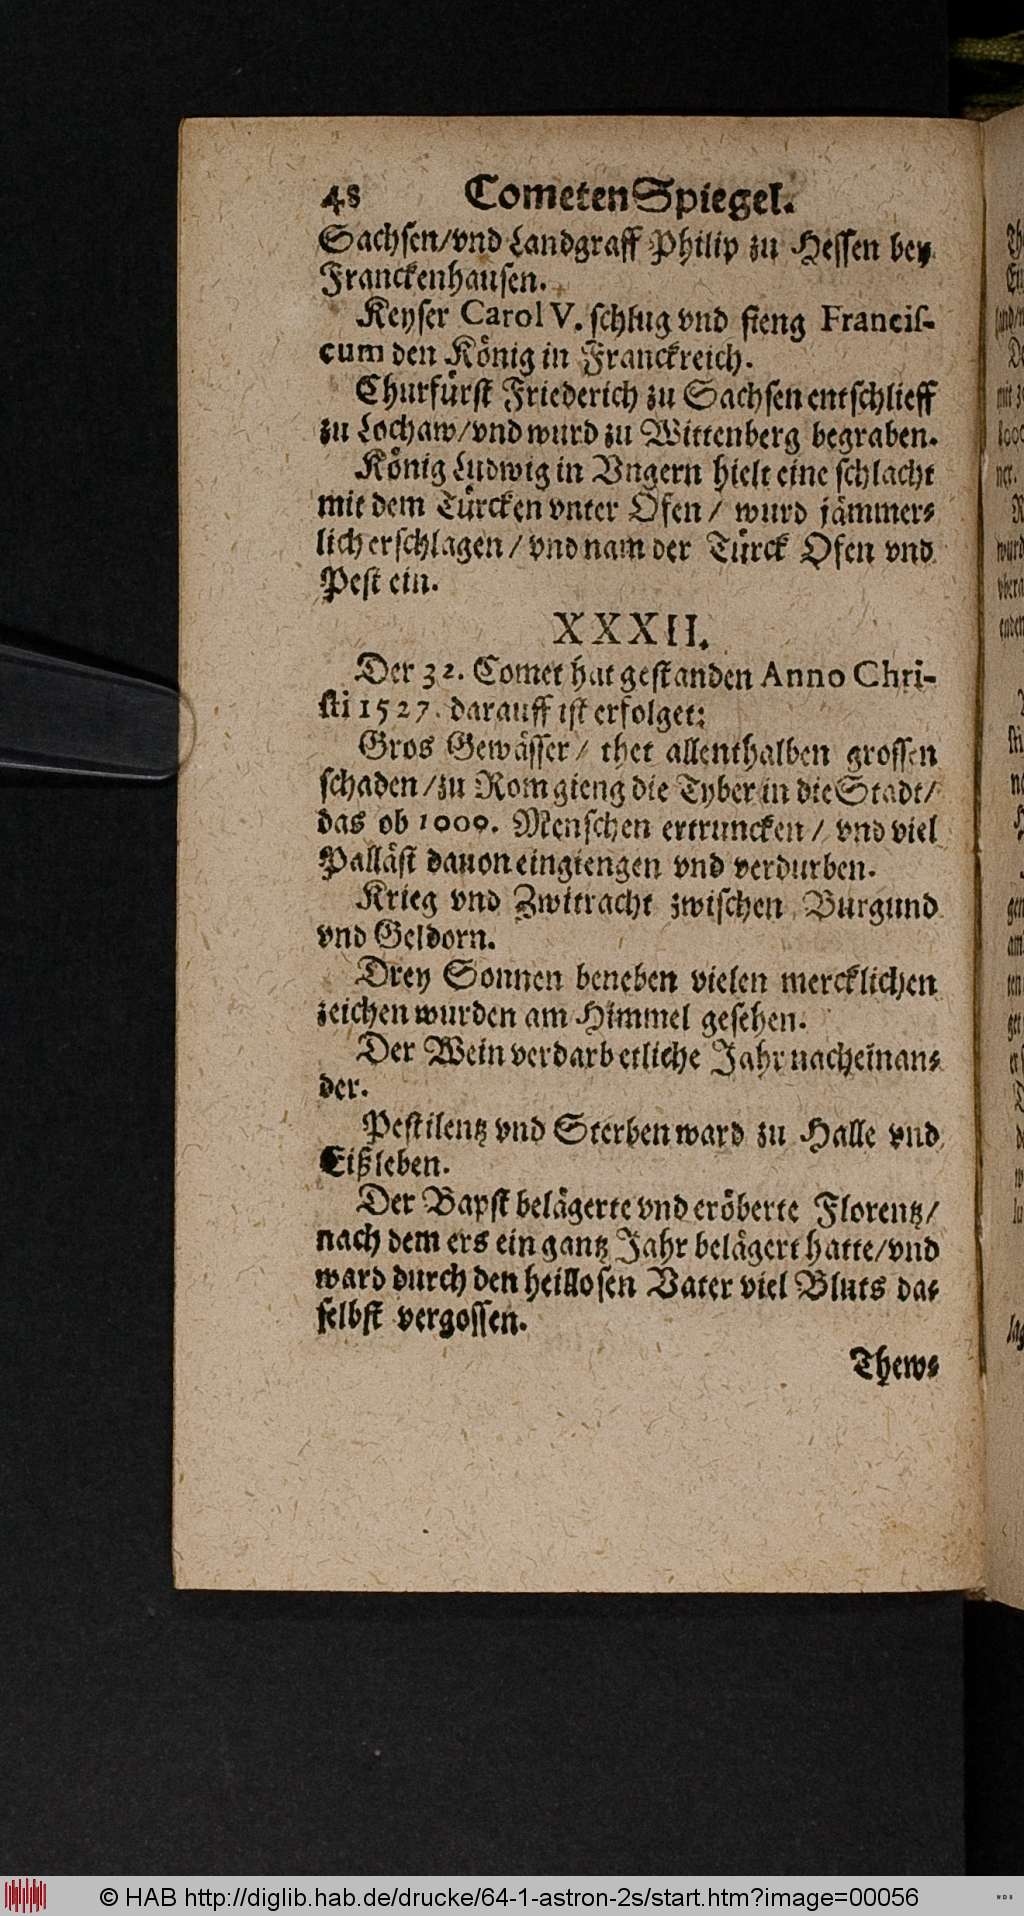 48 Cometen Spiegel.
Sachsen/vnd Landgraff Philip zu Hessen bey
Franckenhausen.
Keyser Carol V. schlug vnd fieng Francis-
cum den König in Franckreich.
Churfürst Friederich zu Sachsen entschlieff
zu Lochaw/vnd wurd zu Wittenberg begraben.
König Ludwig in Vngern hielt eine schlacht
mit dem Türcken vnter Ofen / wurd jämmer-
lich erschlagen / vnd nam der Türck Ofen vnd
Pest ein.
XXXII.
Der 32. Comet hat gestanden Anno Chri-
sti 1527. darauff ist erfolget:
Gros Gewässer / thet allenthalben grossen
schaden /zu Rom gieng die Tyber in die Stadt/
das ob 1000. Menschen ertruncken / vnd viel
Palläst dauon eingiengen vnd verdurben.
Krieg vnd Zwitracht zwischen Burgund
vnd Geldorn.
Drey Sonnen beneben vielen mercklichen
zeichen wurden am Himmel gesehen.
Der Wein verdarb etliche Jahr nacheinan-
der.
Pestilentz vnd Sterben ward zu Halle vnd
Eißleben.
Der Bapst belägerte vnd eröberte Florentz/
nach dem ers ein gantz Jahr belägert hatte/vnd
ward durch den heillosen Vater viel Bluts da-
selbst vergossen.
Thew-
© HAB http://diglib.hab.de/drucke/64-1-astron-2s/start.htm?image=00056